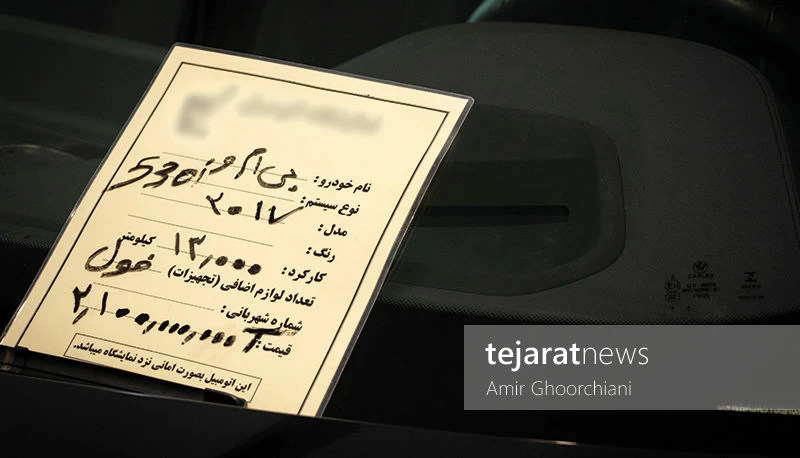 نام خودرو: بی ام و 530i
نوع سیستم:
مدل: ۲۰۱۷
رنگ:
کارکرد: ۱۳,۰۰۰ کیلومتر
تعداد لوازم اضافی (تجهیزات) فول
شماره شهربانی:
قیمت: ۲,۱۰۰,۰۰۰,۰۰۰ T
این اتومبیل بصورت امانی نزد نمایشگاه میباشد.
tejaratnews
Amir Ghoorchiani